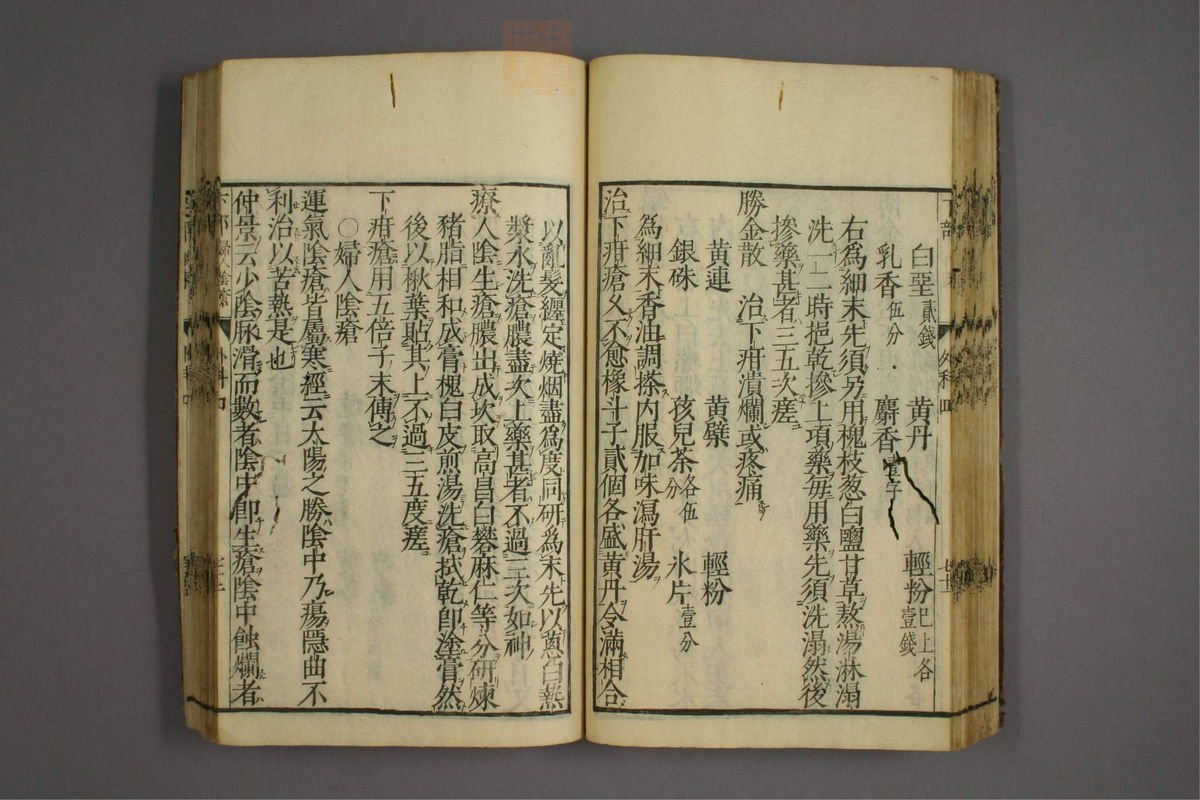 白堊貳錢　黄丹　輕粉巳上各壹錢
乳香伍分　麝香壹字
右爲細末先須另用槐枝葱白鹽甘草熬湯淋溻
洗一二時挹乾摻上項藥毎用藥先須洗溻然後
摻藥甚者三五次瘥
勝金散　治下疳潰爛或疼痛
黄連　黄檗　輕粉
銀硃　孩兒茶各伍分　氷片壹分
爲細末香油調搽内服加味瀉肝湯
治下疳瘡久不愈橡斗子貳個各盛黄丹令滿相合
以亂髮纏定燒烟盡爲度同研爲末先以葱白熱
漿水洗瘡膿盡次上藥甚者不過三次如神
療人陰生瘡膿出成坎取高昌白礬麻仁等分研煉
豬脂相和成膏槐白皮煎湯洗瘡拭乾卽塗膏然
後以楸葉貼其上不過三五度瘥
下疳瘡用五倍子末傅之
〇婦人陰瘡
運氣陰瘡皆屬寒經云太陽之勝陰中乃瘍隱曲不
利治以苦熱是也
仲景云少陰脉滑而數者陰中卽生瘡陰中蝕爛者